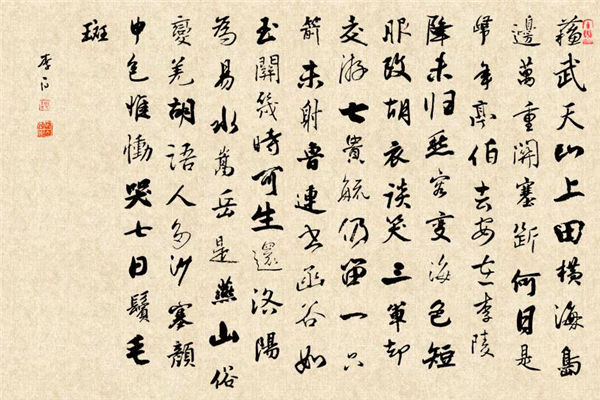 蘇武天山上田橫海島
邊萬重關塞斷何日是
歸年亭伯去安在李陵
降未归愁容变海色短
服改胡衣谈笑三軍却
交游七貴疏仍留一只
箭未射魯連书函谷如
玉關幾時可生還洛陽
為易水嵩岳是燕山俗
變羌胡語人多沙塞顏
申包惟慟哭七日鬢毛
斑
李白